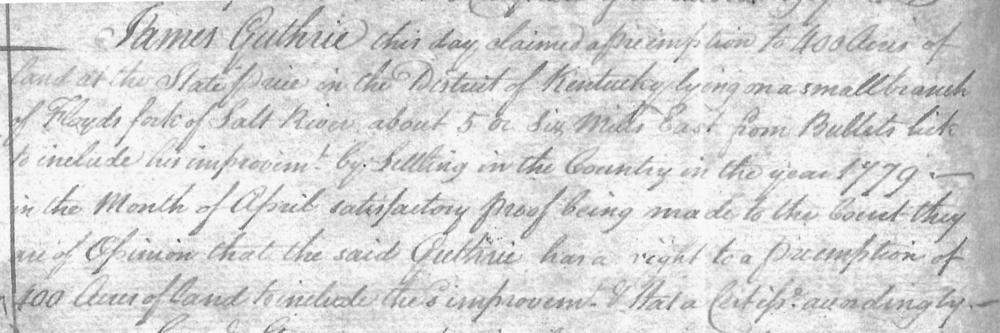 James Guthrie this day claimed a preemption to 400 Acres of
land at the State price in the District of Kentucky lying on a small branch
of Floyds fork of Salt River about 5 or Six Miles East from Bullets lick
to include his improvemt. by Settling in the Country in the year 1779. —
in the Month of April satisfactory proof being made to the Court they
are of Opinion that the said Guthrie has a right to a preemption of
400 Acres of land to include the s improvemt. & that a Certifs. accordingly. —